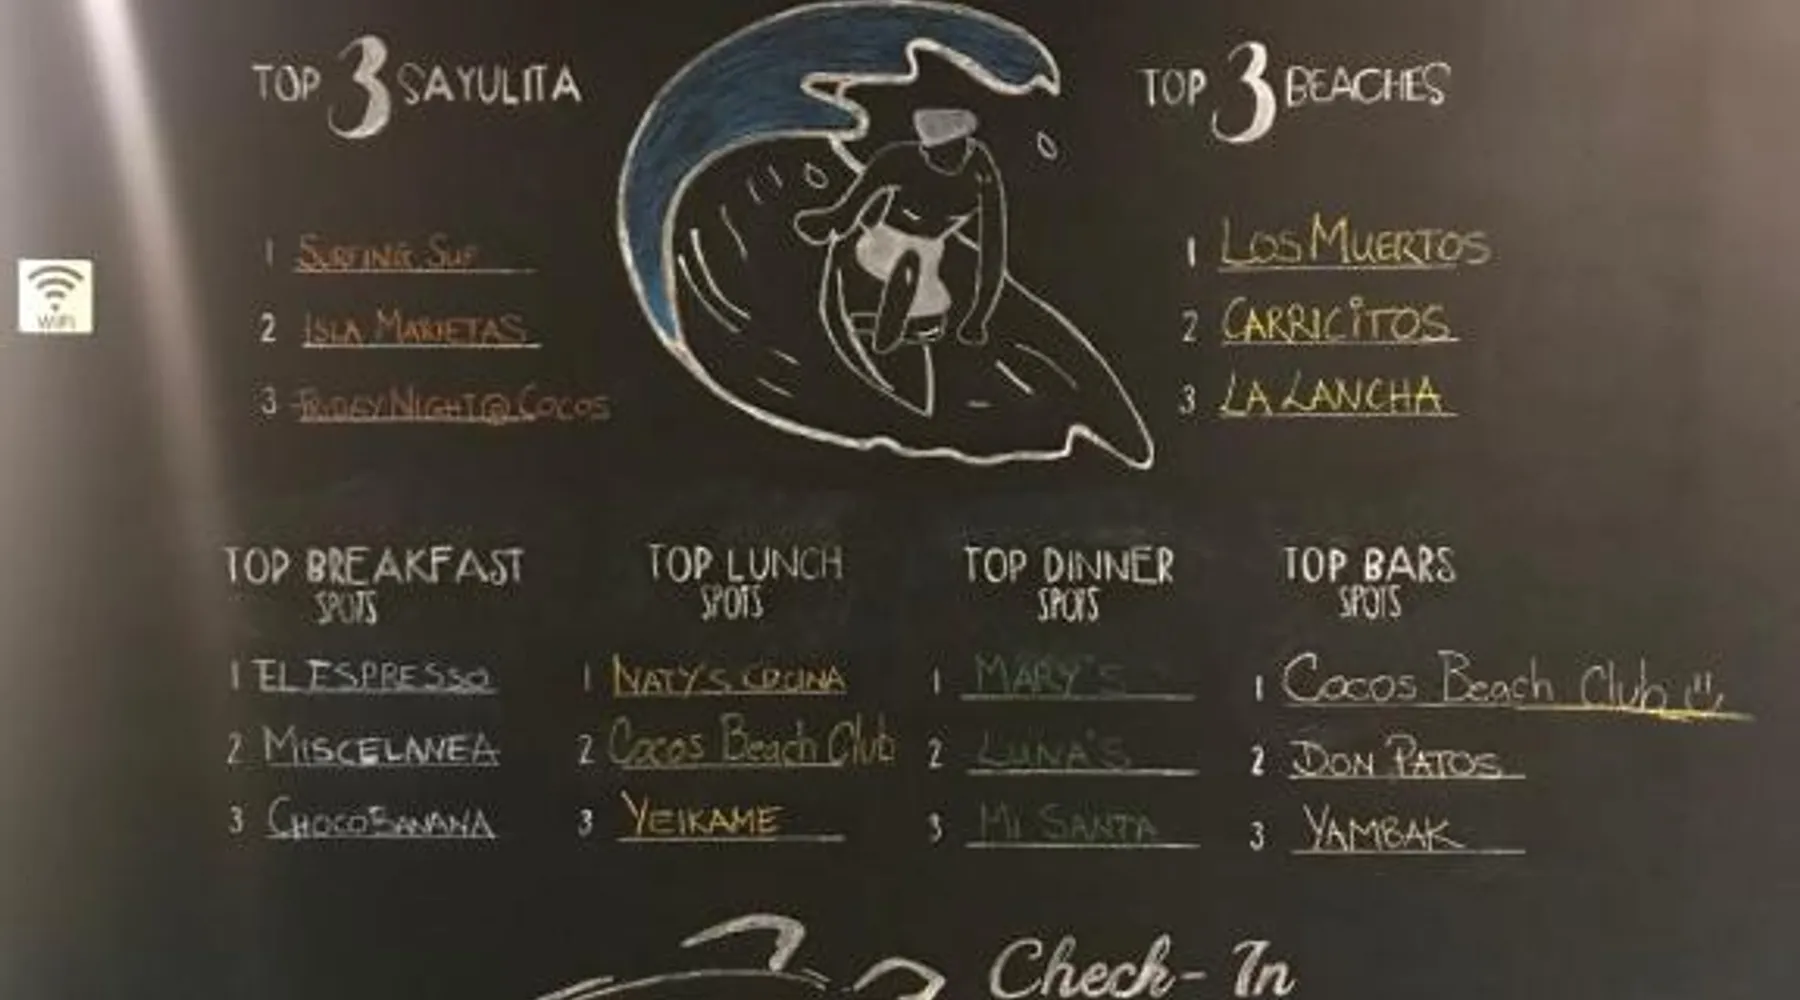 TOP 3 SAYULITA
1 SURFING, SUP
2 ISLA MARIETAS
3 FRIDAY NIGHT @ COCOS
TOP 3 BEACHES
1 LOS MUERTOS
2 CARRICITOS
3 LA LANCHA
WiFi
TOP BREAKFAST
SPOTS
1 EL ESPRESSO
2 MISCELANEA
3 CHOCOBANANA
TOP LUNCH
SPOTS
1 NATY'S COCINA
2 Cocos Beach Club
3 YEIKAME
TOP DINNER
SPOTS
1 MARY'S
2 LUNA'S
3 MI SANTA
TOP BARS
SPOTS
1 Cocos Beach Club
2 DON PATOS
3 YAMBAK
Check-In